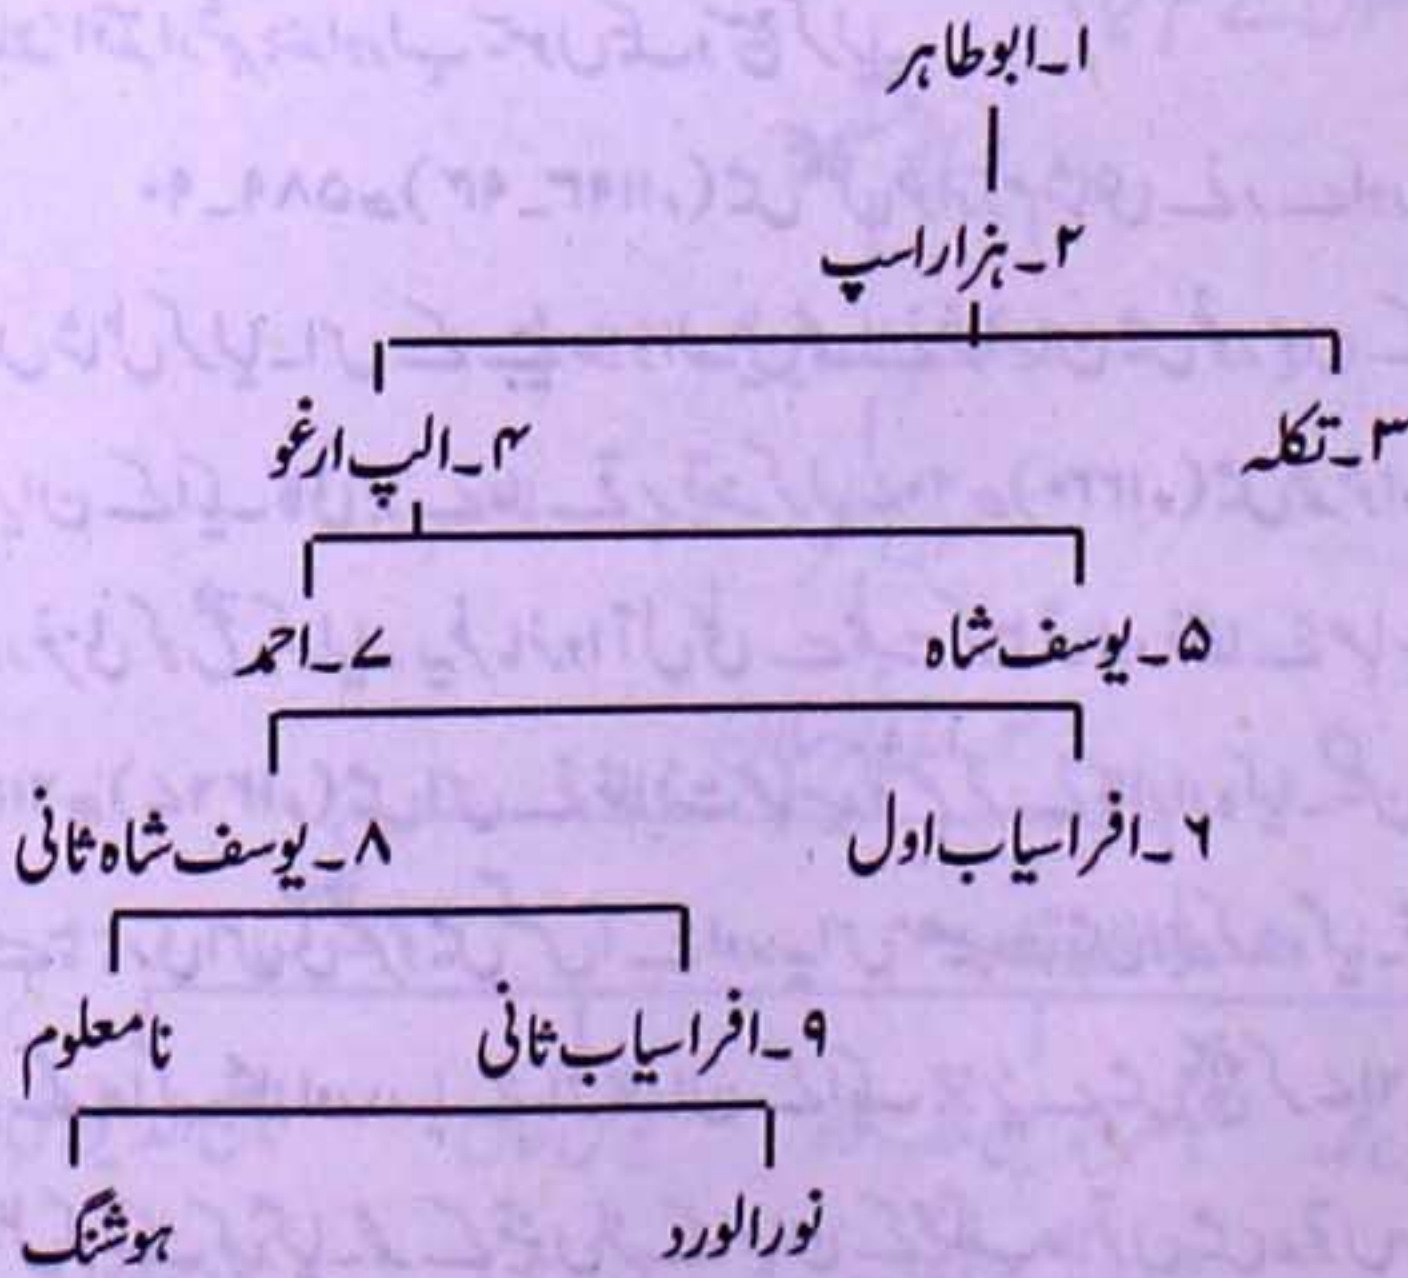 ۱۔ابوطاہر
۲۔ہزاراسپ
۳۔تکلہ
۴۔الپ ارغو
۵۔یوسف شاہ
۷۔احمد
۶۔افراسیاب اول
۸۔یوسف شاہ ثانی
۹۔افراسیاب ثانی
نامعلوم
نورالورد
ہوشنگ